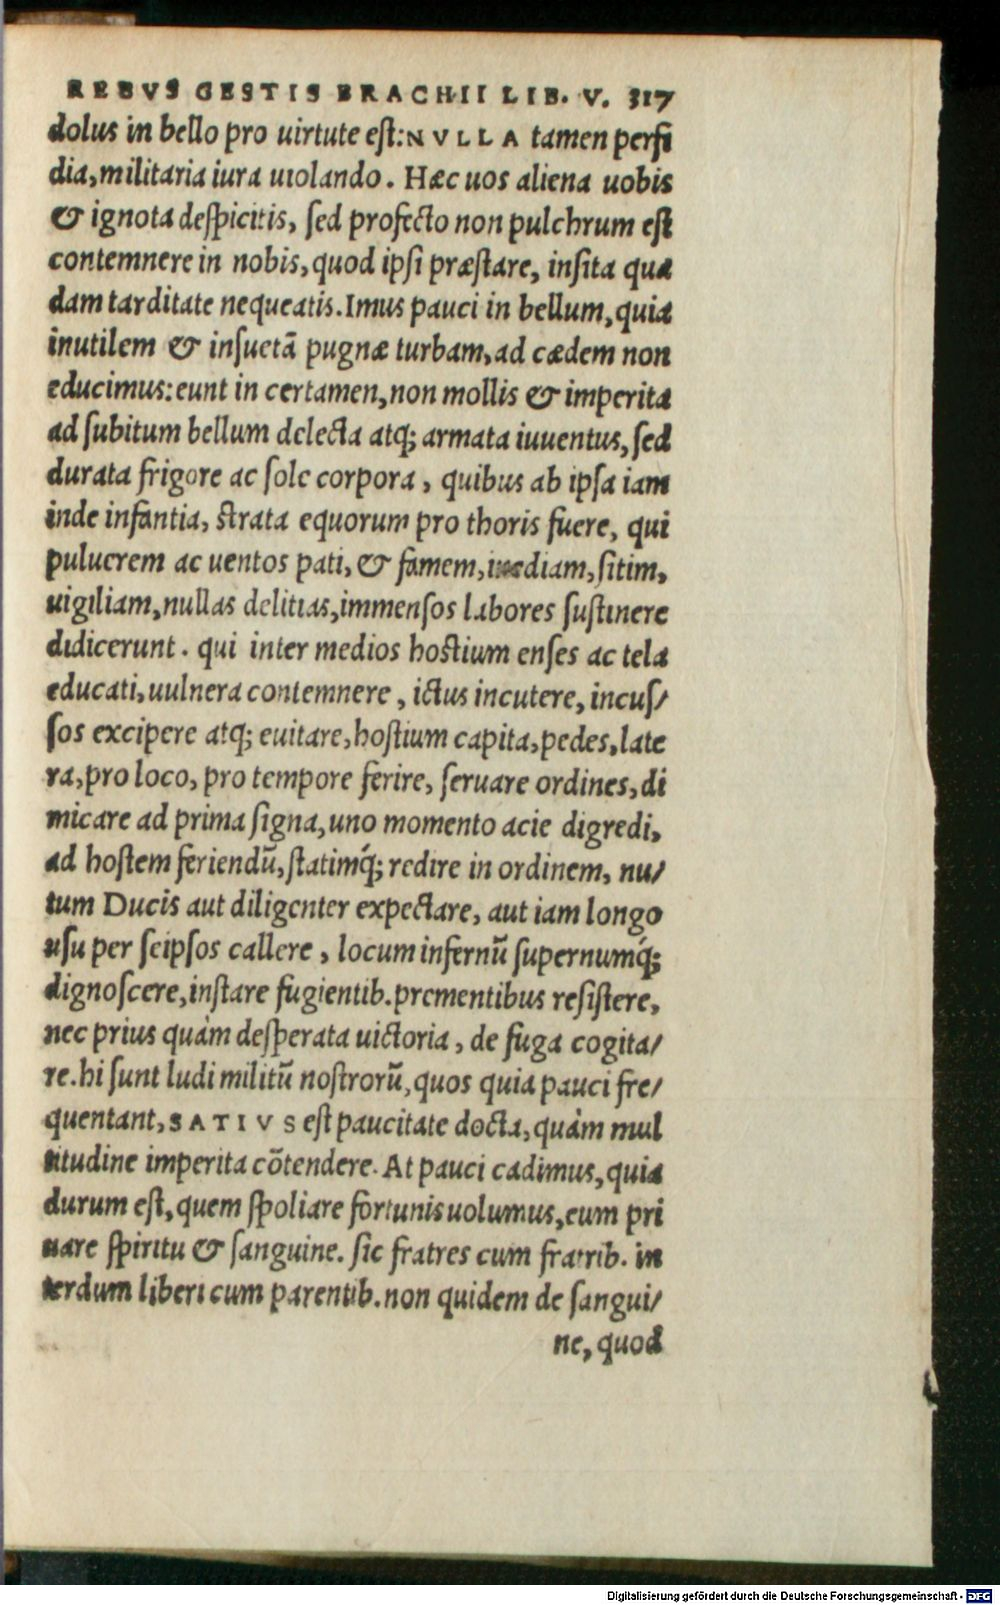 REBVS GESTIS BRACHII LIB. V. 317
dolus in bello pro uirtute eſt: NVLLA tamen perfi
dia, militaria iura uiolando. Hæc uos aliena uobis
& ignota deſpicitis, ſed profecto non pulchrum eſt
contemnere in nobis, quod ipſi præſtare, inſita qua
dam tarditate nequeatis. Imus pauci in bellum, quia
inutilem & inſuetā pugnæ turbam, ad cædem non
educimus: eunt in certamen, non mollis & imperita
ad ſubitum bellum delecta atq; armata iuuentus, ſed
durata frigore ac ſole corpora, quibus ab ipſa iam
inde infantia, ſtrata equorum pro thoris fuere, qui
puluerem ac uentos pati, & famem, inediam, ſitim,
uigiliam, nullas delitias, immenſos labores ſuſtinere
didicerunt. qui inter medios hoſtium enſes ac tela
educati, uulnera contemnere, ictus incutere, incuſ/
ſos excipere atq; euitare, hoſtium capita, pedes, late
ra, pro loco, pro tempore ferire, ſeruare ordines, di
micare ad prima ſigna, uno momento acie digredi,
ad hoſtem feriendū, ſtatimq́; redire in ordinem, nu/
tum Ducis aut diligenter expectare, aut iam longo
uſu per ſeipſos callere, locum infernū ſupernumq́;
dignoſcere, inſtare fugientib. prementibus reſiſtere,
nec prius quàm deſperata uictoria, de fuga cogita/
re. hi ſunt ludi militū noſtrorū, quos quia pauci fre/
quentant, SATIVS eſt paucitate docta, quàm mul
titudine imperita cōtendere. At pauci cadimus, quia
durum eſt, quem ſpoliare fortunis uolumus, eum pri
uare ſpiritu & ſanguine. ſic fratres cum fratrib. in
terdum liberi cum parentib. non quidem de ſangui/
ne, quod
Digitalisierung gefördert durch die Deutsche Forschungsgemeinschaft - DFG